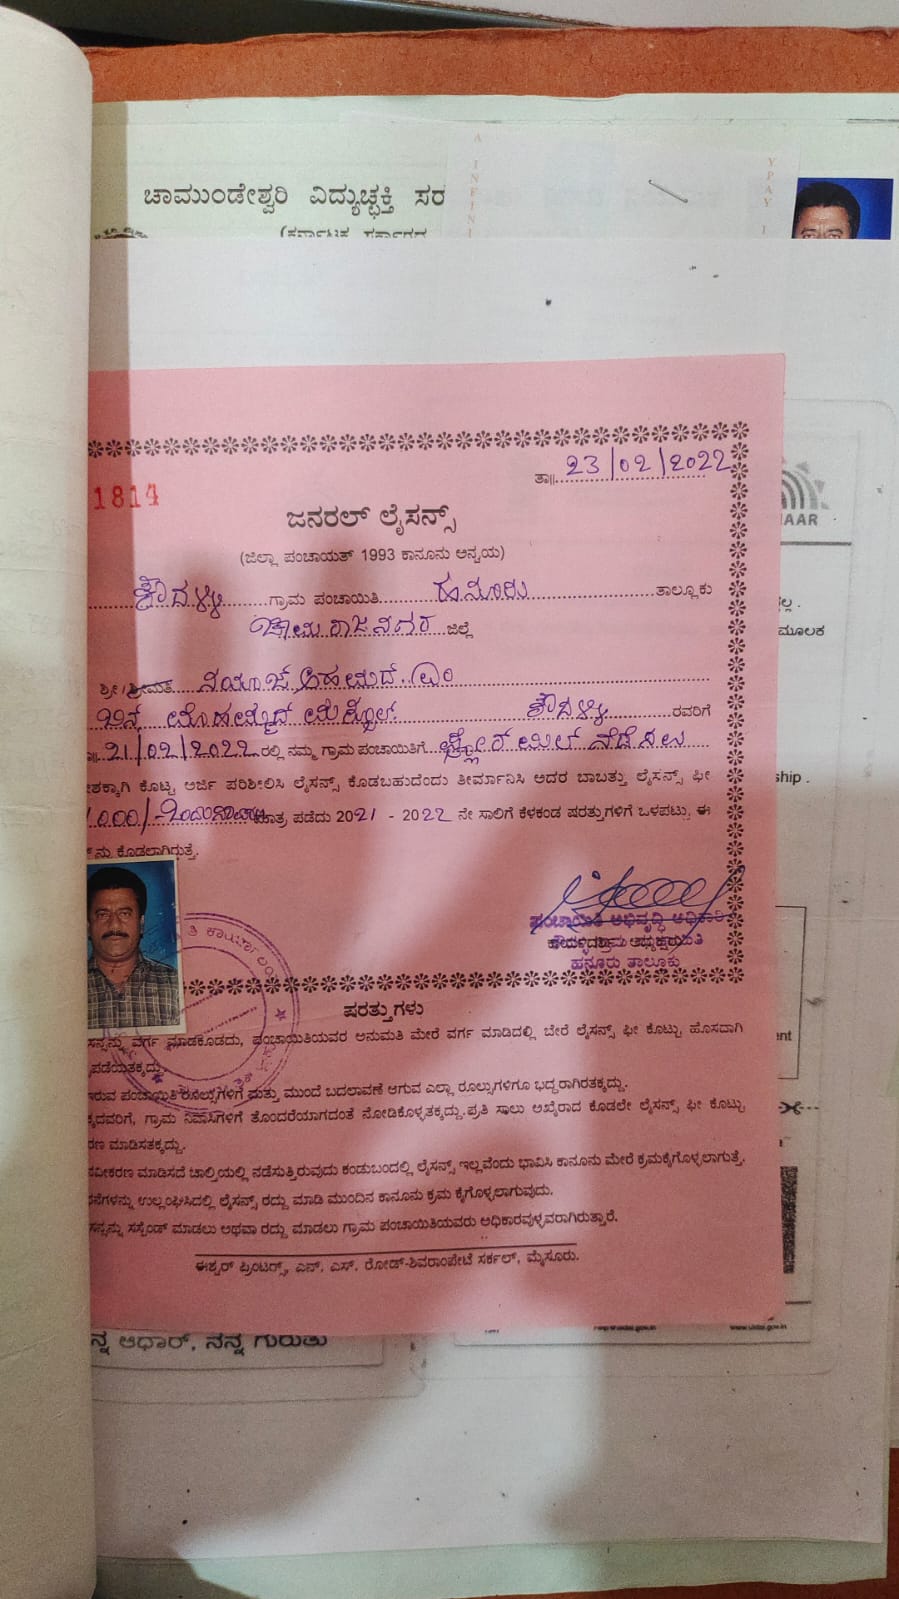 ಚಾಮುಂಡೇಶ್ವರಿ ವಿದ್ಯುಚ್ಛಕ್ತಿ ಸರ
A INFINI
YPAY I
ತಾ||. 23/02/2022
1814
ಜನರಲ್ ಲೈಸನ್ಸ್
(ಜಿಲ್ಲಾ ಪಂಚಾಯತ್ 1993 ಕಾನೂನು ಅನ್ವಯ)
AAR
ಕೌದಳ್ಳಿ ಗ್ರಾಮ ಪಂಚಾಯಿತಿ ಹನೂರು ತಾಲ್ಲೂಕು
ಚಾಮರಾಜನಗರ ಜಿಲ್ಲೆ
ಮೂಲಕ
ಶ್ರೀ/ಶ್ರೀಮತಿ ನಯಾಜ್ ಅಹಮದ್. ಎಂ
ಬಿನ್ ಮೊಹಮ್ಮದ್ ಕೌದಳ್ಳಿ ರವರಿಗೆ
21/02/2022 ರಲ್ಲಿ ನಮ್ಮ ಗ್ರಾಮ ಪಂಚಾಯಿತಿಗೆ ಫ್ಲೋರ್ ಮಿಲ್ ನೆಡೆಸಲು
ship.
ಶಕ್ಕಾಗಿ ಕೊಟ್ಟ ಅರ್ಜಿ ಪರಿಶೀಲಿಸಿ ಲೈಸನ್ಸ್ ಕೊಡಬಹುದೆಂದು ತೀರ್ಮಾನಿಸಿ ಅದರ ಬಾಬತ್ತು ಲೈಸನ್ಸ್ ಫೀ
1000/- ಮಾತ್ರ ಪಡೆದು 2021 - 2022 ನೇ ಸಾಲಿಗೆ ಕೆಳಕಂಡ ಷರತ್ತುಗಳಿಗೆ ಒಳಪಟ್ಟು ಈ
ನು ಕೊಡಲಾಗಿರುತ್ತೆ.
ಪಂಚಾಯಿತಿ ಅಭಿವೃದ್ಧಿ ಅಧಿಕಾರಿ
ಹನೂರು ತಾಲೂಕು
ಷರತ್ತುಗಳು
ಸನ್ಸನ್ನು ವರ್ಗ ಮಾಡಕೂಡದು, ಪಂಚಾಯಿತಿಯವರ ಅನುಮತಿ ಮೇರೆ ವರ್ಗ ಮಾಡಿದಲ್ಲಿ ಬೇರೆ ಲೈಸನ್ಸ್ ಫೀ ಕೊಟ್ಟು ಹೊಸದಾಗಿ
ಪಡೆಯತಕ್ಕದ್ದು.
ಇರುವ ಪಂಚಾಯಿತಿ ರೂಲ್ಸುಗಳಿಗೆ ಮತ್ತು ಮುಂದೆ ಬದಲಾವಣೆ ಆಗುವ ಎಲ್ಲಾ ರೂಲ್ಸುಗಳಿಗೂ ಭದ್ದರಾಗಿರತಕ್ಕದ್ದು.
ಕ್ಕದವರಿಗೆ, ಗ್ರಾಮ ನಿವಾಸಿಗಳಿಗೆ ತೊಂದರೆಯಾಗದಂತೆ ನೋಡಿಕೊಳ್ಳತಕ್ಕದ್ದು.ಪ್ರತಿ ಸಾಲು ಅಖೈರಾದ ಕೂಡಲೇ ಲೈಸನ್ಸ್ ಫೀ ಕೊಟ್ಟು
ರಣ ಮಾಡಿಸತಕ್ಕದ್ದು.
ನವೀಕರಣ ಮಾಡಿಸದೆ ಚಾಲ್ತಿಯಲ್ಲಿ ನಡೆಸುತ್ತಿರುವುದು ಕಂಡುಬಂದಲ್ಲಿ ಲೈಸನ್ಸ್ ಇಲ್ಲವೆಂದು ಭಾವಿಸಿ ಕಾನೂನು ಮೇರೆ ಕ್ರಮಕೈಗೊಳ್ಳಲಾಗುತ್ತೆ.
ಗಳನ್ನು ಉಲ್ಲಂಘಿಸಿದಲ್ಲಿ ಲೈಸನ್ಸ್ ರದ್ದು ಮಾಡಿ ಮುಂದಿನ ಕಾನೂನು ಕ್ರಮ ಕೈಗೊಳ್ಳಲಾಗುವುದು.
ಸನ್ಸನ್ನು ಸಸ್ಪೆಂಡ್ ಮಾಡಲು ಅಥವಾ ರದ್ದು ಮಾಡಲು ಗ್ರಾಮ ಪಂಚಾಯಿತಿಯವರು ಅಧಿಕಾರವುಳ್ಳವರಾಗಿರುತ್ತಾರೆ.
ಈಶ್ವರ್ ಪ್ರಿಂಟರ್ಸ್, ಎನ್. ಎಸ್. ರೋಡ್-ಶಿವರಾಂಪೇಟೆ ಸರ್ಕಲ್, ಮೈಸೂರು.
www.uidai.gov.in
ನ್ನ ಆಧಾರ್, ನನ್ನ ಗುರುತು